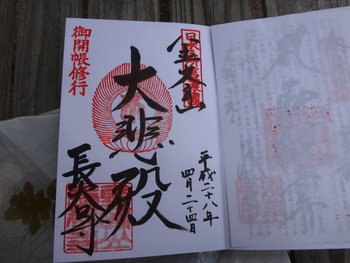 金峯山
大悲殿
長谷寺
御開帳修行
平成二八年
四月二十四日